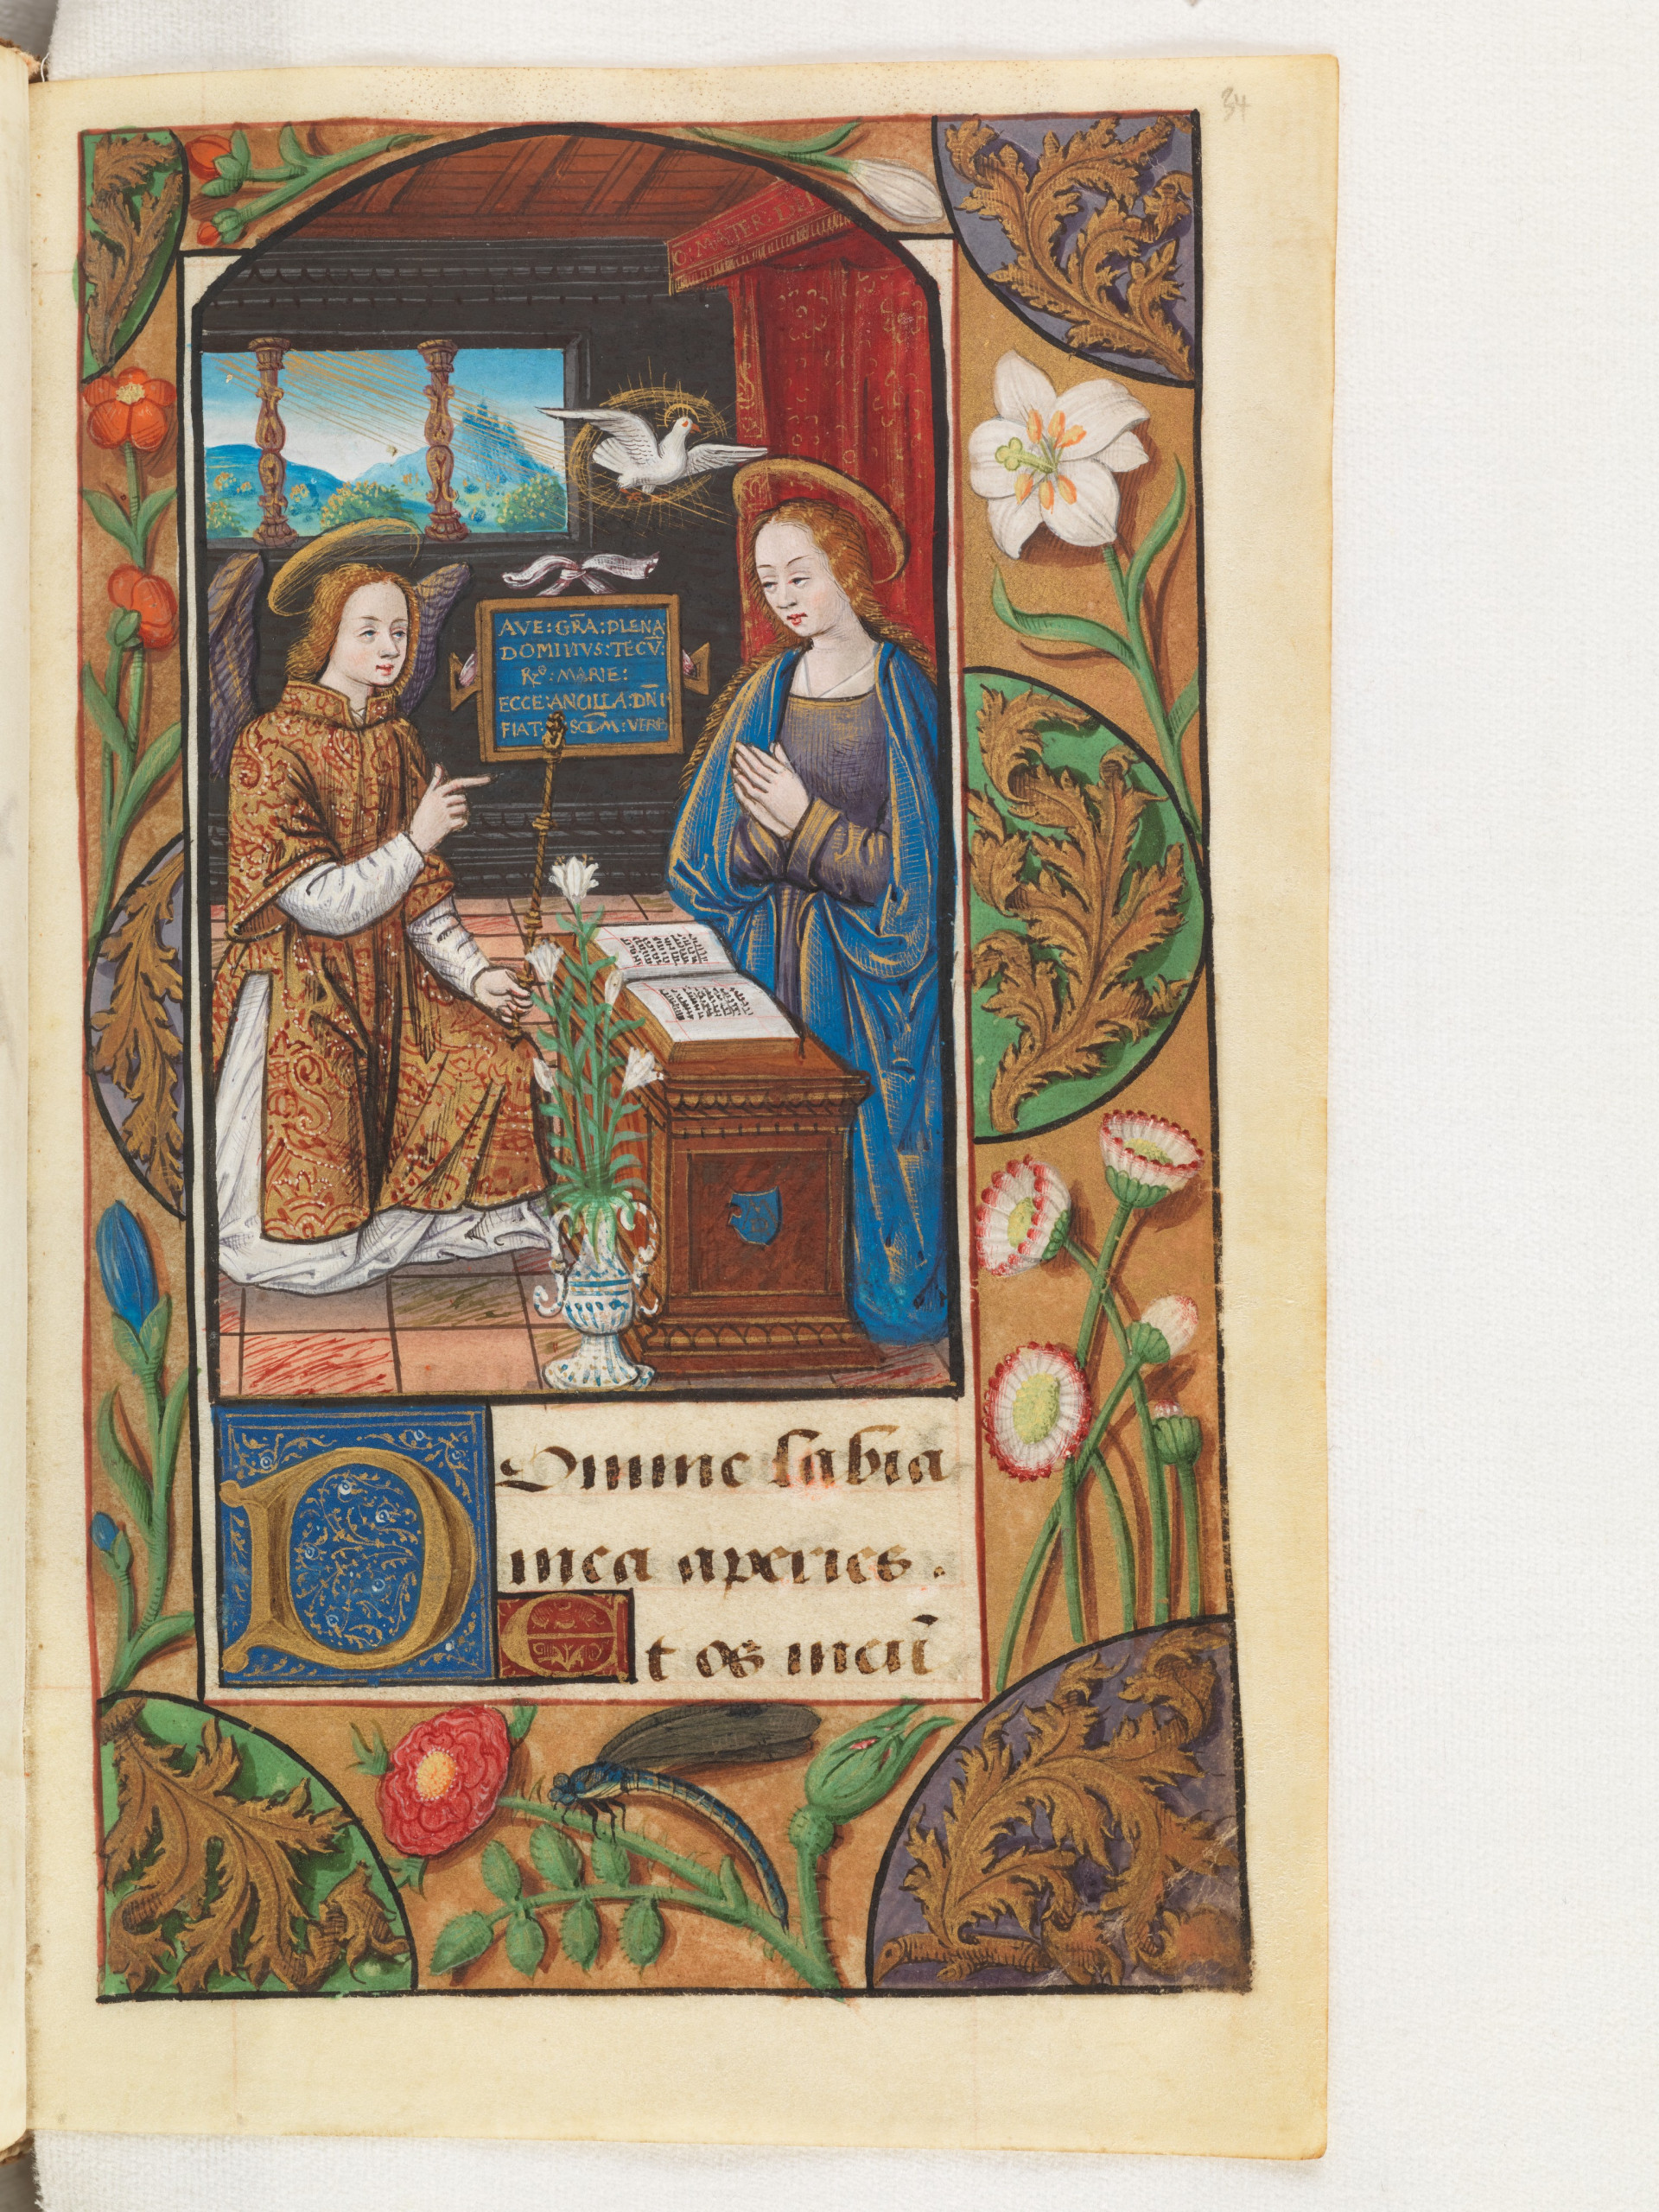 34
O: MATER:
AVE: GRĀ: PLENA
DOMINVS: TECV̄:
R̄o: MARIE:
ECCE: ANCILLA: DN̄I
FIAT: SCD̄M: VERB
Domine labia
mea aperies.
Et os meū